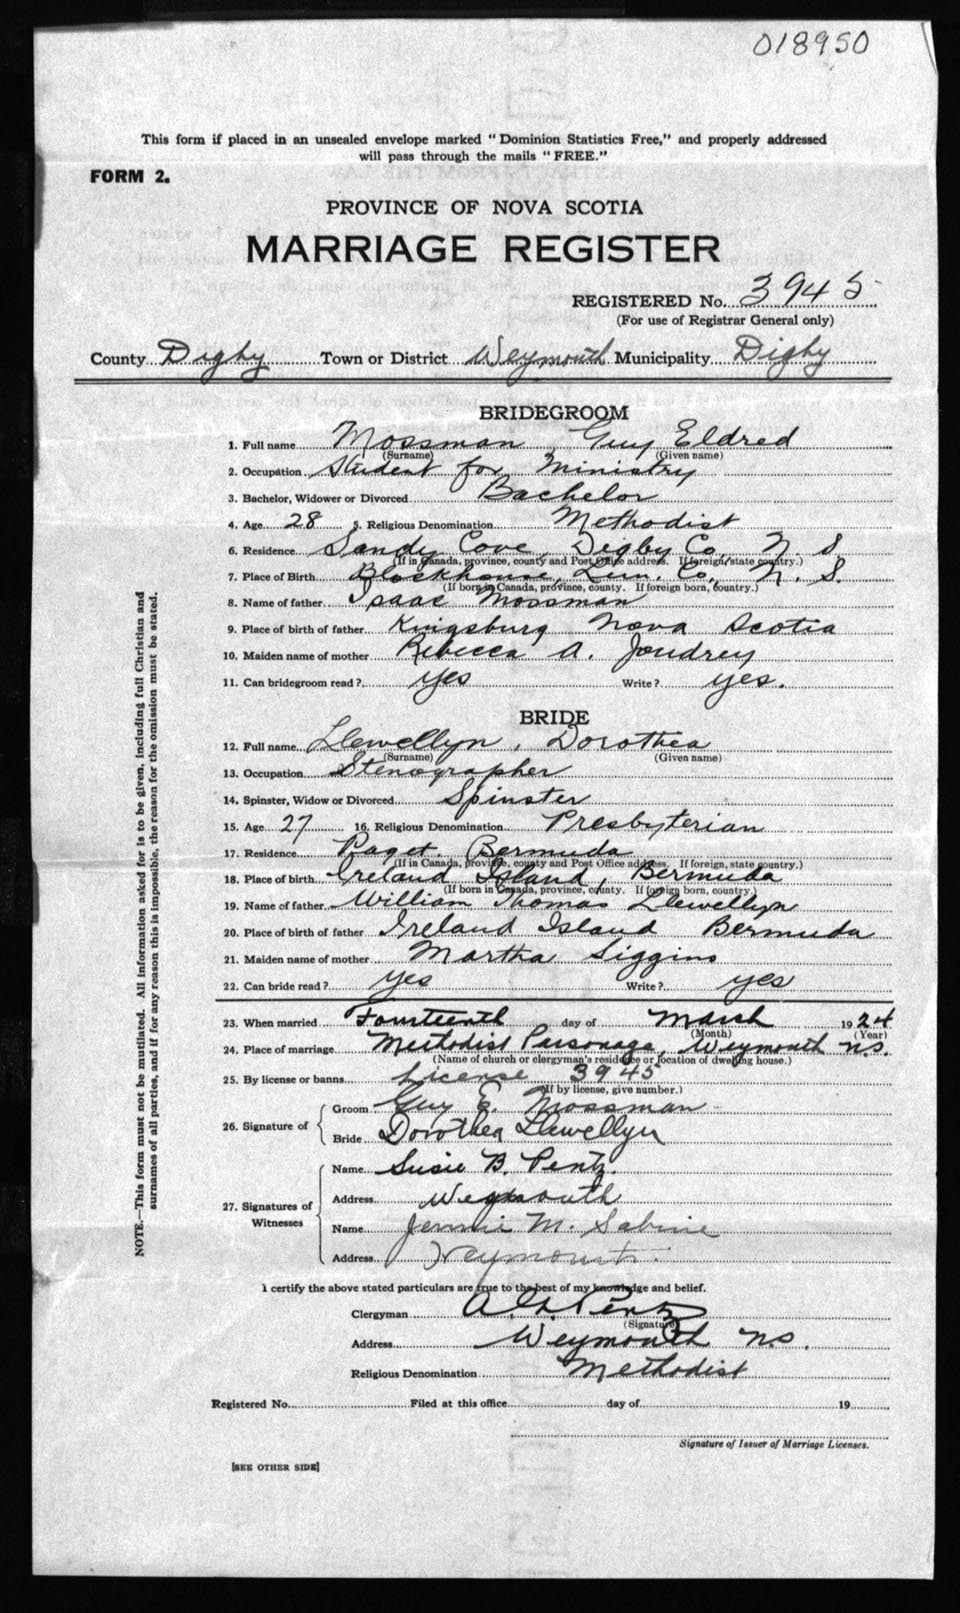 018950
This form if placed in an unsealed envelope marked "Dominion Statistics Free," and properly addressed
will pass through the mails "FREE."
FORM 2.
PROVINCE OF NOVA SCOTIA
MARRIAGE REGISTER
REGISTERED No. 3945
(For use of Registrar General only)
County Digby Town or District Weymouth Municipality Digby
BRIDEGROOM
1. Full name Mossman Guy Eldred
(Surname) (Given name)
2. Occupation Student for Ministry
3. Bachelor, Widower or Divorced Bachelor
4. Age 28 5. Religious Denomination Methodist
6. Residence Sandy Cove, Digby Co, N S
(If in Canada, province, county and Post Office address. If foreign, state country.)
7. Place of Birth Blockhouse, Lun. Co., N. S.
(If born in Canada, province, county. If foreign born, country.)
8. Name of father Isaac Mossman
9. Place of birth of father Kingsburg Nova Scotia
10. Maiden name of mother Rebecca A. Joudrey
11. Can bridegroom read? yes Write? yes.
BRIDE
12. Full name Llewellyn, Dorothea
(Surname) (Given name)
13. Occupation Stenographer
14. Spinster, Widow or Divorced Spinster
15. Age 27 16. Religious Denomination Presbyterian
17. Residence Paget, Bermuda
(If in Canada, province, county and Post Office address. If foreign, state country.)
18. Place of birth Ireland Island, Bermuda
(If born in Canada, province, county. If foreign born, country.)
19. Name of father William Thomas Llewellyn
20. Place of birth of father Ireland Island Bermuda
21. Maiden name of mother Martha Siggins
22. Can bride read? yes Write? yes
23. When married Fourteenth day of March 1924
(Month) (Year)
24. Place of marriage Methodist Parsonage, Weymouth N.S.
(Name of church or clergyman's residence or location of dwelling house.)
25. By license or banns License 3945
(If by license, give number.)
26. Signature of
Groom Guy E. Mossman
Bride Dorothea Llewellyn
27. Signatures of Witnesses
Name Susie B. Pentz.
Address Weymouth
Name Jennie M. Sabine
Address Weymouth.
I certify the above stated particulars are true to the best of my knowledge and belief.
Clergyman Pentz
(Signature)
Address Weymouth N.S.
Religious Denomination Methodist
Registered No. Filed at this office day of 19
Signature of Issuer of Marriage Licenses.
[SEE OTHER SIDE]
NOTE.—This form must not be mutilated. All information asked for is to be given, including full Christian and
surnames of all parties, and if for any reason this is impossible, the reason for the omission must be stated.